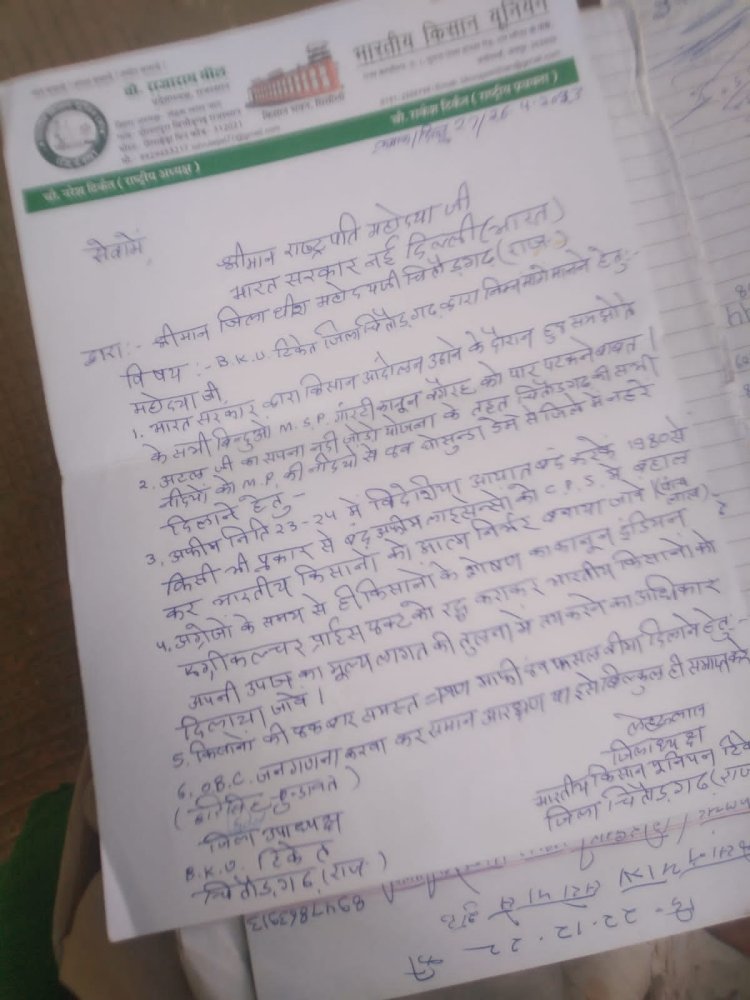 भारतीय किसान यूनियन
चौ. राजाराम मील
किसान भवन, सिसौली
चौ. नरेश टिकैत ( राष्ट्रीय अध्यक्ष )
चौ. राकेश टिकैत ( राष्ट्रीय प्रवक्ता )
सेवामें,
श्रीमान राष्ट्रपति महोदया जी
भारत सरकार नई दिल्ली (भारत)
द्वारा:- श्रीमान जिलाधीश महोदयजी चितौड़गढ़ (राज.)
विषय :- B.K.U. टिकेत जिला चितौड़गढ़ द्वारा निम्न मांगे मानने हेतु:-
महोदया जी,
1. भारत सरकार द्वारा किसान आंदोलन उठाने के दौरान हुए समझोते
के सभी बिन्दुओ M.S.P. गारंटी कानून वगैरह को पार पटकने बाबत।
2. अटल जी का सपना नदी जोड़ो योजना के तहत चितौड़गढ़ की सभी
नदीयों को M.P. की नदियों से एवं घोसुन्डा डेम से जिले में नहरे
दिलाने हेतु-
3. अफीम निति 23-24 में विदेशिया आयात बंद करके 1980 से
किसी भी प्रकार से बंद अफीम लाइसेन्सो को C.P.S. में बहाल
कर भारतीय किसानों को आत्म निर्भर बनाया जावे
4. अंग्रेजों के समय से ही किसानों के शोषण का कानून इंडियन
एग्रीकल्चर प्राईस एक्ट को रद्द कराकर भारतीय किसानों को
अपनी उपज का मूल्य लागत की तुलना में तय करने का अधिकार
दिलाया जावे।
5. किसानों की एक बार समस्त ऋण माफी एवं फसल बीमा दिलाने हेतु-
6. O.B.C. जन गणना करवा कर समान आरक्षण या इसे बिल्कुल ही समाप्त करे
जिला उपाध्यक्ष
B.K.U. टिकेत
चितौड़गढ़ (राज.)
जिलाध्यक्ष
भारतीय किसान यूनियन टिके
जिला चितौड़गढ़ (राज
8947863913
22.12.22